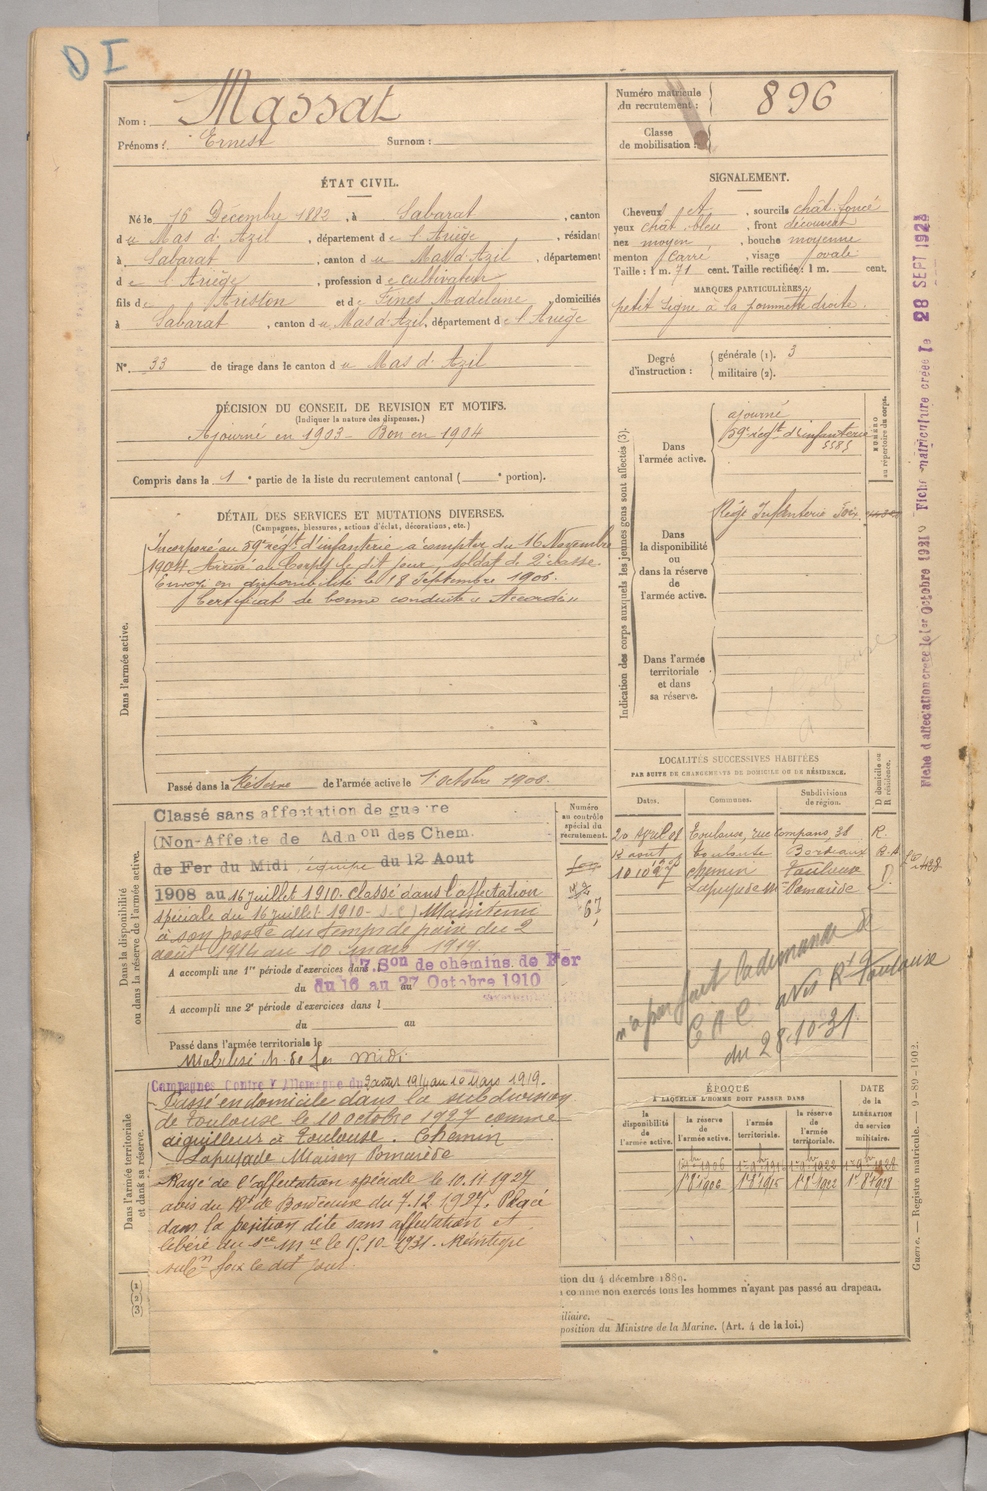 DI
Nom : Massat
Prénoms : Ernest Surnom :
Numéro matricule du recrutement : 896
Classe de mobilisation :
ÉTAT CIVIL.
Né le 16 Décembre 1882, à Sabarat, canton
du Mas d'Azil, département de l'Ariège, résidant
à Sabarat, canton du Mas d'Azil, département
de l'Ariège, profession de cultivateur
fils de Ariston et de Madeleine, domiciliés
à Sabarat, canton du Mas d'Azil, département de l'Ariège
N° 33 de tirage dans le canton du Mas d'Azil
SIGNALEMENT.
Cheveux et, sourcils chât. foncé
yeux chât. bleu, front découvert
nez moyen, bouche moyenne
menton carré, visage ovale
Taille : 1 m. 71 cent. Taille rectifiée : 1 m. cent.
MARQUES PARTICULIÈRES :
petit signe à la pommette droite.
Degré d'instruction : générale (1). 3
militaire (2).
DÉCISION DU CONSEIL DE REVISION ET MOTIFS.
(Indiquer la nature des dispenses.)
Ajourné en 1903 - Bon en 1904
Compris dans la 1e partie de la liste du recrutement cantonal ( e portion).
DÉTAIL DES SERVICES ET MUTATIONS DIVERSES.
(Campagnes, blessures, actions d'éclat, décorations, etc.)
Dans l'armée active.
Incorporé au 59e régt d'infanterie à compter du 16 Novembre
1904 Arrivé au Corps le dit jour, soldat de 2e classe.
Envoyé en disponibilité le 18 Septembre 1906.
Certificat de bonne conduite « Accordé »
Passé dans la Réserve de l'armée active le 1 octobre 1906.
Indication des corps auxquels les jeunes gens sont affectés (3).
NUMÉRO au répertoire du corps.
Dans l'armée active.
ajourné
59e régt d'infanterie
5585
Dans la disponibilité ou dans la réserve de l'armée active.
Régt Infanterie Foix
Dans l'armée territoriale et dans sa réserve.
Dans la disponibilité ou dans la réserve de l'armée active.
Classé sans affectation de guerre
(Non-Affecté de Adnon des Chem.
de Fer du Midi équipe du 12 Aout
1908 au 16 juillet 1910. Classé dans l'affectation
spéciale du 16 juillet 1910 - Maintenu
à son poste du temps de paix du 2
août 1914 au 10 mars 1919.
A accompli une 1re période d'exercices dans 7e Son de chemins de Fer
du 16 au 27 Octobre 1910
A accompli une 2e période d'exercices dans l
du au
Passé dans l'armée territoriale le
Midi
Numéro au contrôle spécial du recrutement.
67
LOCALITÉS SUCCESSIVES HABITÉES
PAR SUITE DE CHANGEMENTS DE DOMICILE OU DE RÉSIDENCE.
Dates. Communes. Subdivisions de région. D domicile ou R résidence.
Toulouse, rue Compans, 38 R.
août Toulouse Bordeaux
10 10 27 chemin Toulouse D.
Lapujade Mon Pomarède
n'a pas fait la demande d
avis Rt Toulouse
du 28.10.31
Dans l'armée territoriale et dans sa réserve.
Campagnes Contre l'Allemagne du 2 aout 1914 au 10 Mars 1919.
Passé en domicile dans la subdivision
de Toulouse le 10 octobre 1927 comme
aiguilleur à Toulouse. Chemin
Lapujade Maison Pomarède
Rayé de l'affectation spéciale le 10.11.1927
avis du Rt de Bordeaux du 7.12.1927. Placé
dans la position dite sans affectation et
libéré du sce mre le 15.10-1931. Réintègre
subon Foix le dit jour.
ÉPOQUE
À LAQUELLE L'HOMME DOIT PASSER DANS
la disponibilité de l'armée active. la réserve de l'armée active. l'armée territoriale. la réserve de l'armée territoriale.
DATE de la LIBÉRATION du service militaire.
1r 8bre 1906 1r 8bre 1915 1r 8bre 1922 1r 8bre 1928
(1) (2) (3)
tion du 4 décembre 1889.
comme non exercés tous les hommes n'ayant pas passé au drapeau.
iliaire.
position du Ministre de la Marine. (Art. 4 de la loi.)
Fiche d'affectation créée le 1er Octobre 1921 Fiche matriculaire créée le 28 SEPT 1928
Guerre. — Registre matricule. — 9-89-1902.